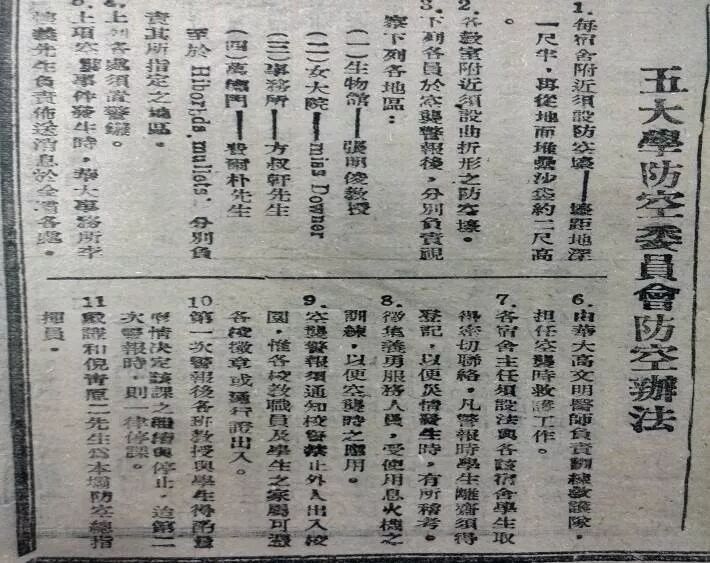 五大學防空委員會防空辦法
1.每宿舍附近須設防空壕——壕距地深
一尺半，再從地面堆疊沙袋約二尺高
。
2.各教室附近須設曲折形之防空壕。
3.下列各員於空襲警報後，分別負責視
察下列各地區：
（一）生物館——張明俊教授
（二）女大院——miss Downer
（三）事務所——方叔軒先生
（四）萬德門——費爾朴先生
至於 Hibbards, mullets, 分別負
責其所指定之地區。
4.上列各處須置警鐘。
5.上項空襲事件發生時，華大事務所李
義先生負責佈送消息於全壩各處。
6.由華大高文明醫師負責訓練救護隊，
担任空襲時救護工作。
7.各宿舍主任須設法與各該宿舍學生取
得密切聯絡，凡警報時學生離齋須得
登記，以便災情發生時，有所稽考。
8.徵集義勇服務人員，受使用息火機之
訓練，以便空襲時之應用。
9.空襲警報須通知校警禁止外人出入校
園，惟各校教職員及學生之家屬可憑
各校徽章或通行證出入。
10第一次警報後各班教授與學生得酌量
情决定該課之繼續與停止，迨第二
次警報時，則一律停課。
11殷謹和倪青原二先生爲本壩防空總指
揮員。